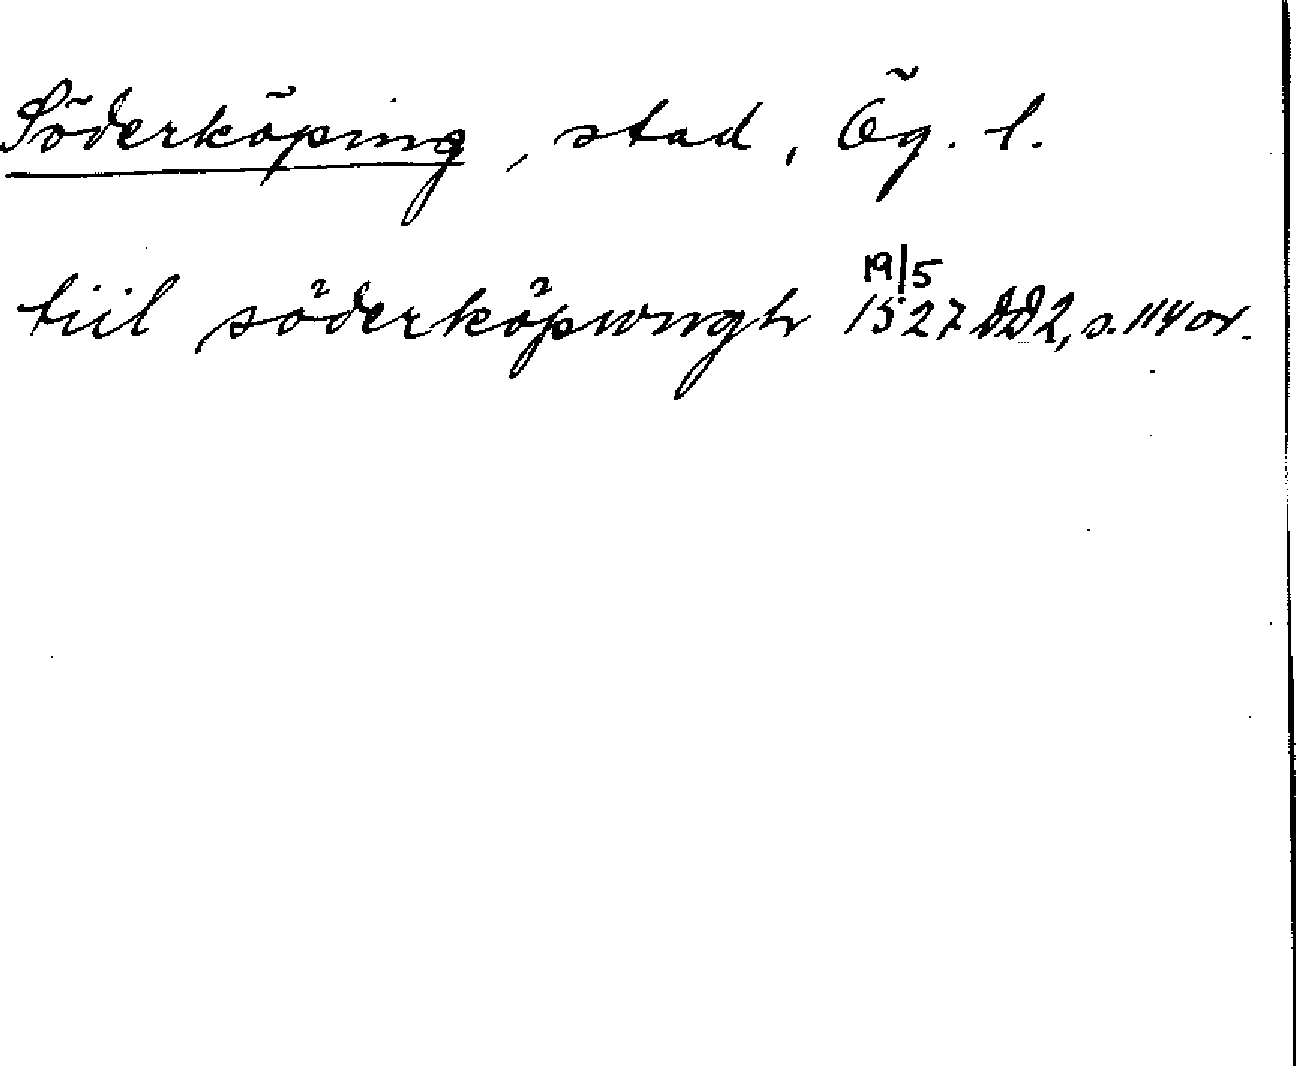 Söderköping, stad, Ög. l.
tiil söderköpungh 19/5 1527 DD2, s. 114 or.